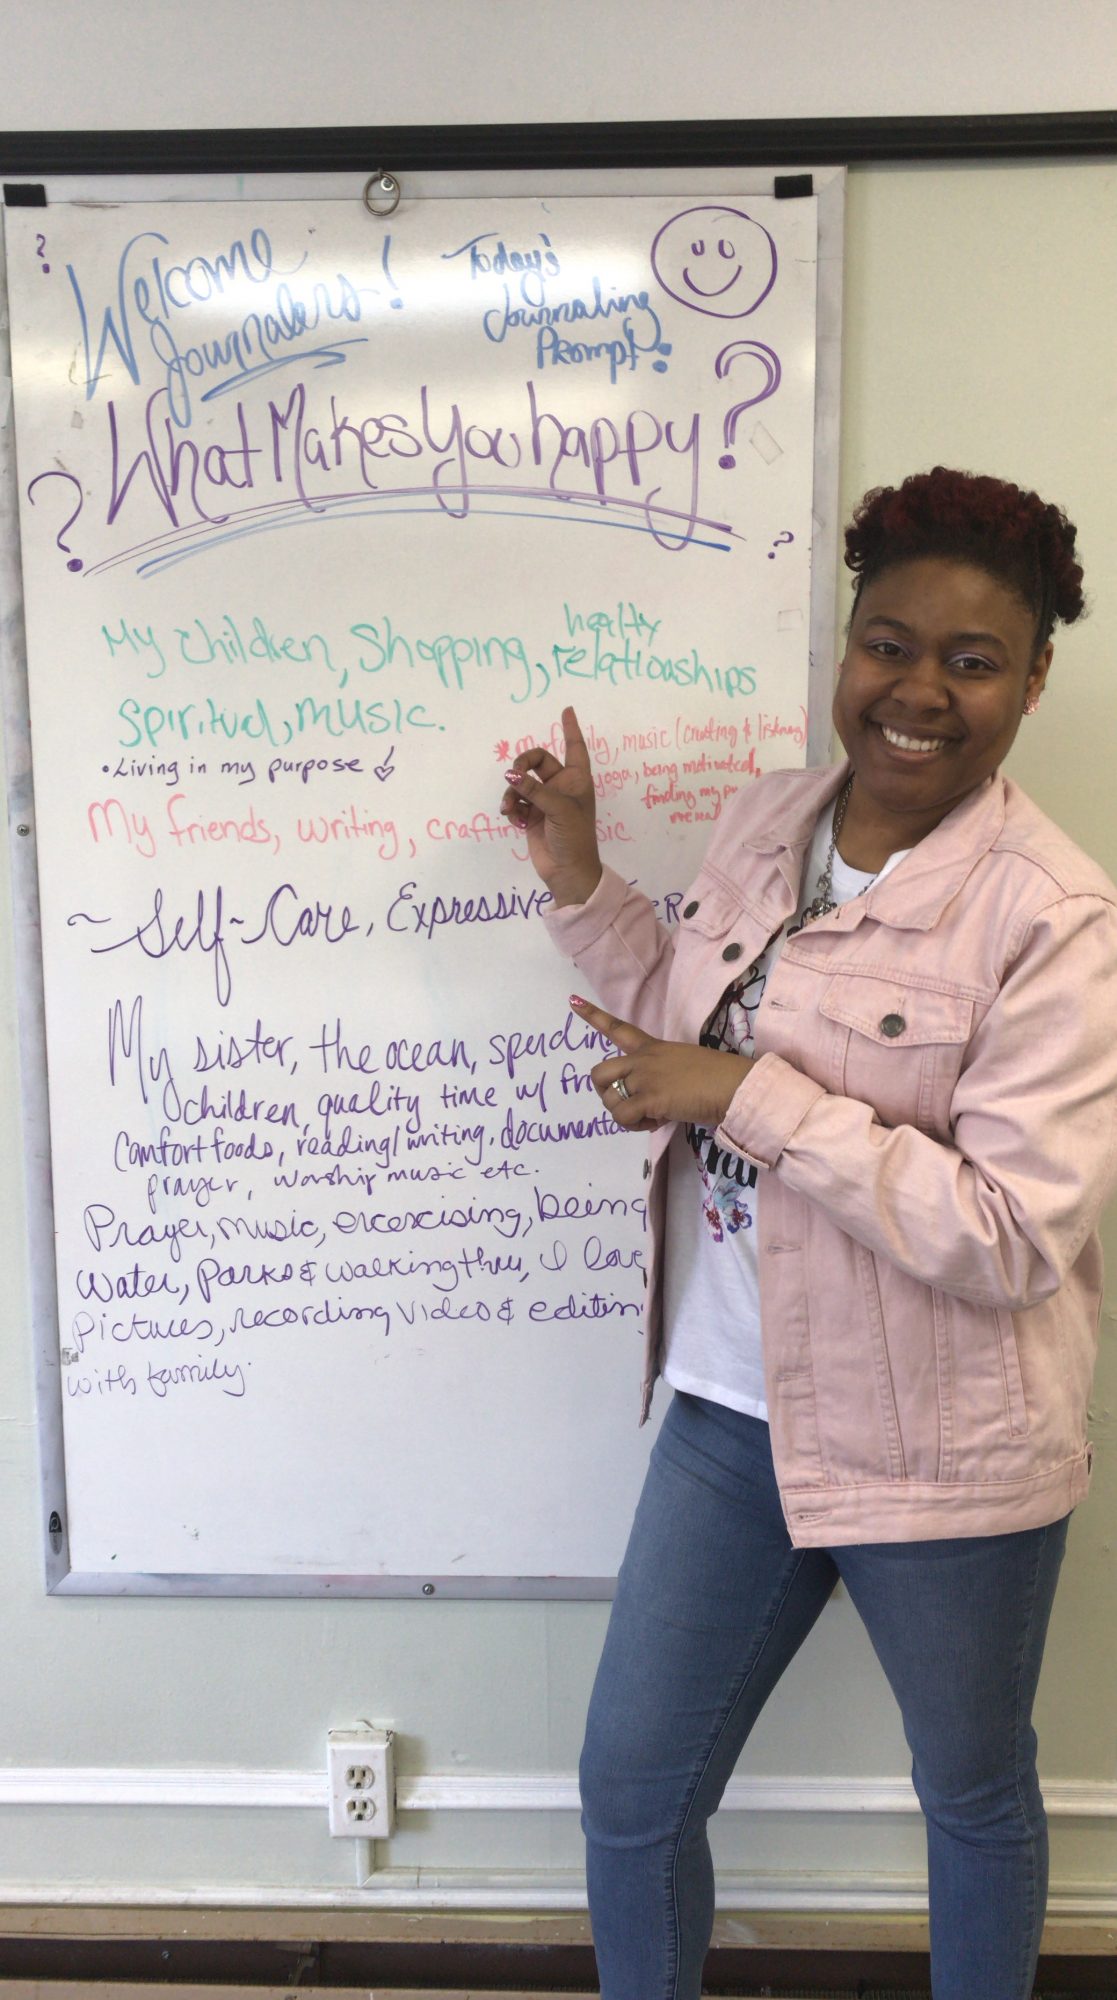 ?
Welcome
Journalers!
Today's
Journaling
Prompt:
What Makes You happy?
?
?
My children, Shopping, healty
relationships
spiritual, music.
• Living in my purpose
* My family, music (creating & listening)
yoga, being motivated,
finding my
My friends, writing, crafting
~ Self-Care, Expressive
My sister, the ocean, spending
children, quality time w/
Comfort foods, reading/writing,
prayer, worship music etc.
Prayer, music, excercising, being
Water, parks & walking thru, I love
Pictures, recording video &
with family.